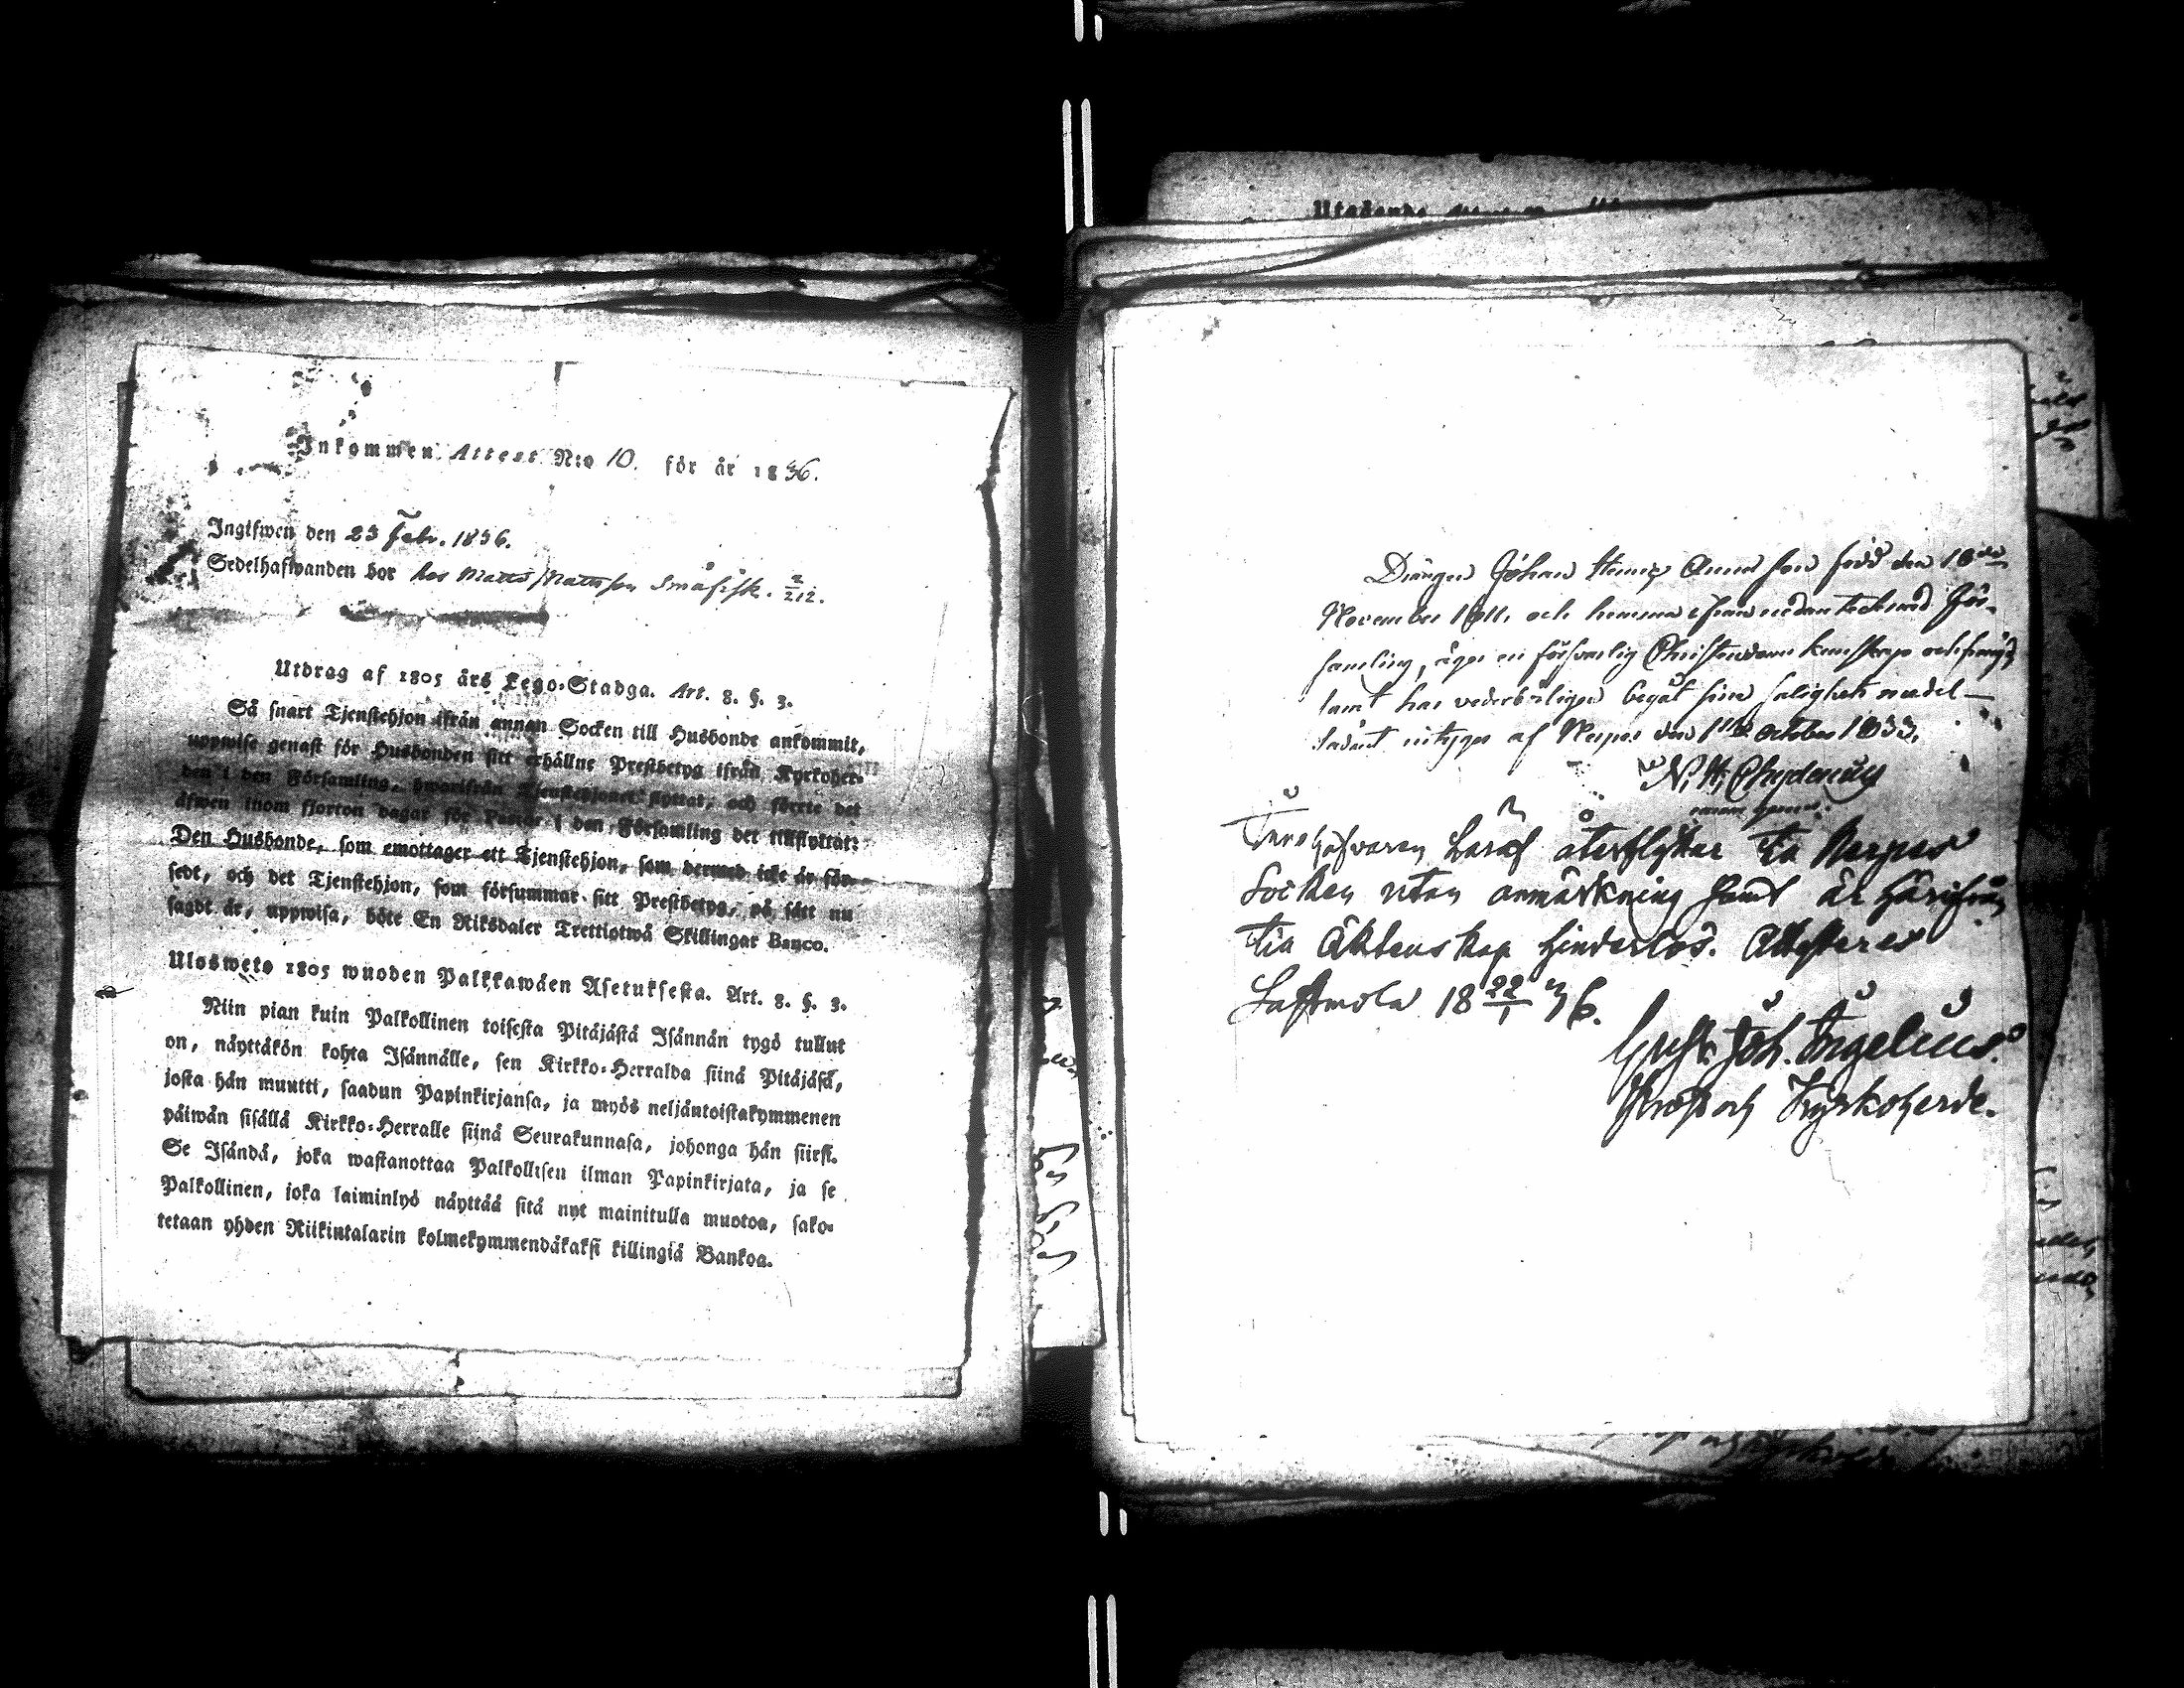 Inkommen Attest N:o 10. för år 1836.
Ingifwen den 23 Febr. 1836.
Sedelhafwanden bor hos Matts Mattsson Småfisk. 2/212.
Utdrag af 1805 års Lego-Stadga. Art. 8. §. 3.
Så snart Tjenstehjon ifrån annan Socken till Husbonde ankommit,
uppwise genast för Husbonden sitt erhållne Prestbetyg ifrån Kyrkoher-
den i den Församling, hwarifrån Tjenstehjonet flyttat, och förete det
äfwen inom fjorton dagar för Pastor i den Församling det tillflyttat:
Den Husbonde, som emottager ett Tjenstehjon, som dermed icke är för-
sedt, och det Tjenstehjon, som försummar sitt Prestbetyg, på sätt nu
sagdt är, uppwisa, böte En Riksdaler Trettiotwå Skillingar Banco.
Ulosweto 1805 wuoden Palkkawäen Asetuksesta. Art. 8. §. 3.
Niin pian kuin Palkollinen toisesta Pitäjästä Isännän tygö tullut
on, näyttäkön kohta Isännälle, sen Kirkko-Herralda siinä Pitäjäsä,
josta hän muutti, saadun Papinkirjansa, ja myös neljäntoistakymmenen
päiwän sisällä Kirkko-Herralle siinä Seurakunnasa, johonga hän siirsi.
Se Isändä, joka wastanottaa Palkollisen ilman Papinkirjata, ja se
Palkollinen, joka laiminlyö näyttää sitä nyt mainitulla muotoa, sako-
tetaan yhden Riikintalarin kolmekymmendäkaksi killingiä Bankoa.
Utgående
Drängen Johan Henric Annasson född den 18de
November 1811. och hemma ifrån nedantecknad För-
samling, äger en försvarlig Christendoms kunskap och frägd
samt har vederbörligen begåt sine salighets medel
sådant intygar af Nerpes den 1sta October 1833.
N. H. Chydenius
häraf återflyttar til Nerpes
Socken utan anmärkning samt är härifrån
til Äktenskap hinderlös. Attesteras
Lappmola 18 22/1 36.
Gust. Joh. Ingelius.
Prost och Kyrkoherde.